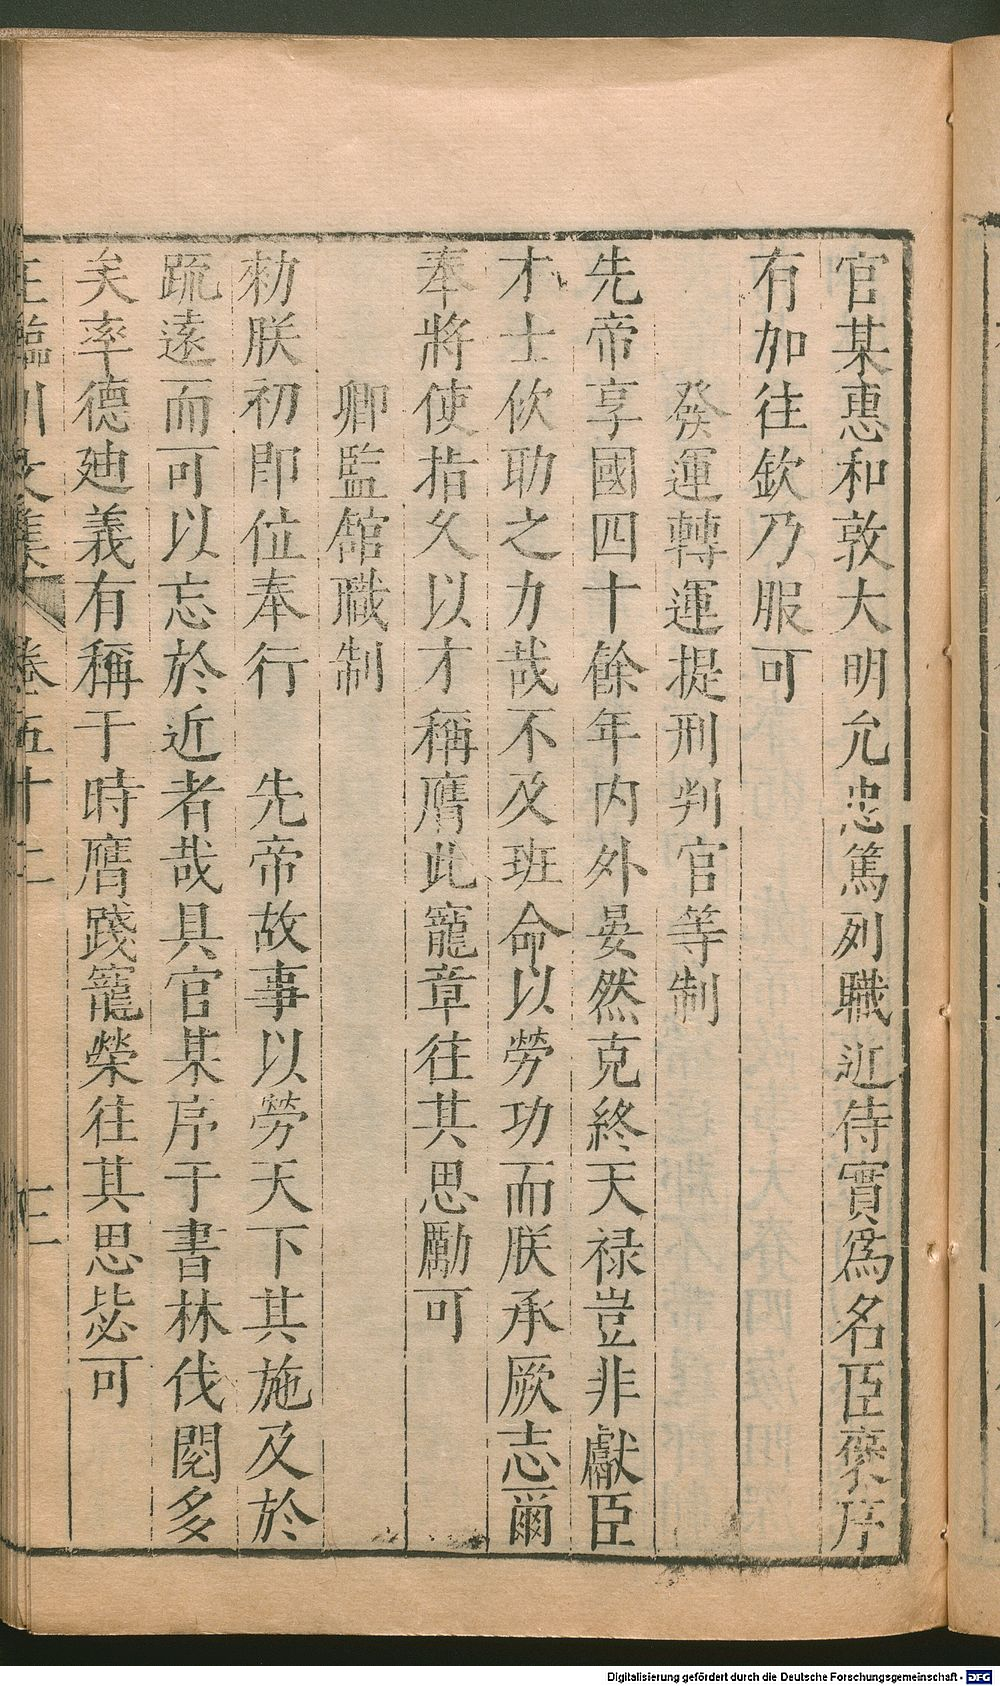 官某惠和敦大明允忠篤列職近侍實爲名臣襃序
有加往欽乃服可
發運轉運提刑判官等制
先帝享國四十餘年内外晏然克終天禄豈非獻臣
才士佽助之力哉不及班命以勞功而朕承厥志爾
奉將使指久以才稱膺此寵章往其思勵可
卿監舘職制
勑朕初即位奉行　先帝故事以勞天下其施及於
䟽遠而可以忘於近者哉具官某序于書林伐閱多
矣率德廸義有稱于時膺踐寵榮往其思毖可
王臨川文集 卷五十二 三
Digitalisierung gefördert durch die Deutsche Forschungsgemeinschaft - DFG